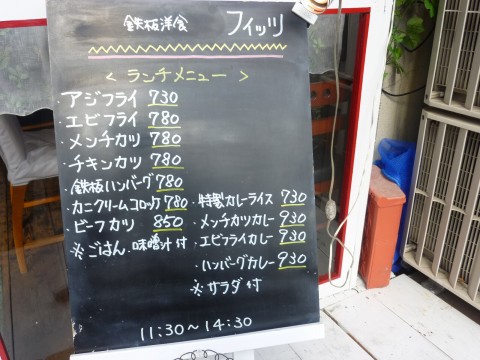 鉄板洋食 フィッツ
< ランチメニュー >
・アジフライ 730
・エビフライ 780
・メンチカツ 780
・チキンカツ 780
・鉄板ハンバーグ 780
・カニクリームコロッケ 780
・ビーフカツ 850
※ごはん、味噌汁付
・特製カレーライス 730
・メンチカツカレー 930
・エビフライカレー 930
・ハンバーグカレー 930
※サラダ付
11:30~14:30